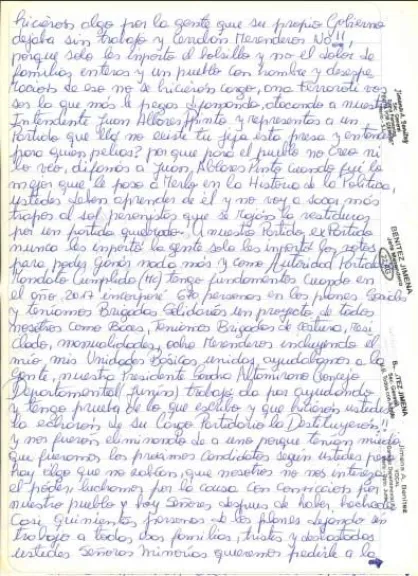 hicieron algo por la gente que su propio Gobierno
dejaba sin trabajo y cerraban Merenderos No!!,
porque solo les importó el bolsillo y no el dolor de
familias enteras y un pueblo con hambre y desespe
ración de eso no se hicieron cargo,
sos la que más le pegas difamando, atacando a nuestro
Intendente Juan Pinto y representas a un
Partido que ella no existe tu fija esta presa y entonces
para quien peleas? porque para el pueblo no creo ni
lo veo, difamas a Juan Pinto cuando fue lo
mejor que le paso a Merlo en la Historia de la Política,
ustedes deben aprender de él y no voy a sacar más
trapos al sol, peronistas que se rasgan la vestidura
por un partido quebrado! A nuestro Partido, ex Partido
nunca les importó la gente solo les importó los votos
para poder ganar nada más y como Autoridad Partidaria
Mandato Cumplido (MC) tengo fundamentos cuando en
el año, 2017 incorporé 670 personas en los planes Sociales
y teníamos Brigadas Solidarias un proyecto de todos
nosotros como Bases, teníamos Brigadas de costura, Reci
clado, manualidades, ocho Merenderos incluyendo el
mío mis Unidades Básicas unidas, ayudábamos a la
gente, nuestra Presidente Altamirano (Consejo
Departamental Junín) trabajó día por ayudando
y tengo prueba de lo que escribo y que hicieron ustedes
la echaron de su Cargo Partidario la Destituyeron!!
y nos fueron eliminando de a uno porque tenían miedo
que fuéramos los próximos candidatos según ustedes pero
hay algo que no sabían, que nosotros no nos interesa
el poder, luchamos por la causa con convicción por
nuestro pueblo y hoy Señores despues de haber hechado
Casi quinientas personas de los planes dejando sin
trabajo a todas esas familias, tristes y desbastadas
ustedes Señoras Minorías queremos pedirle a la
BENITEZ JIMENA